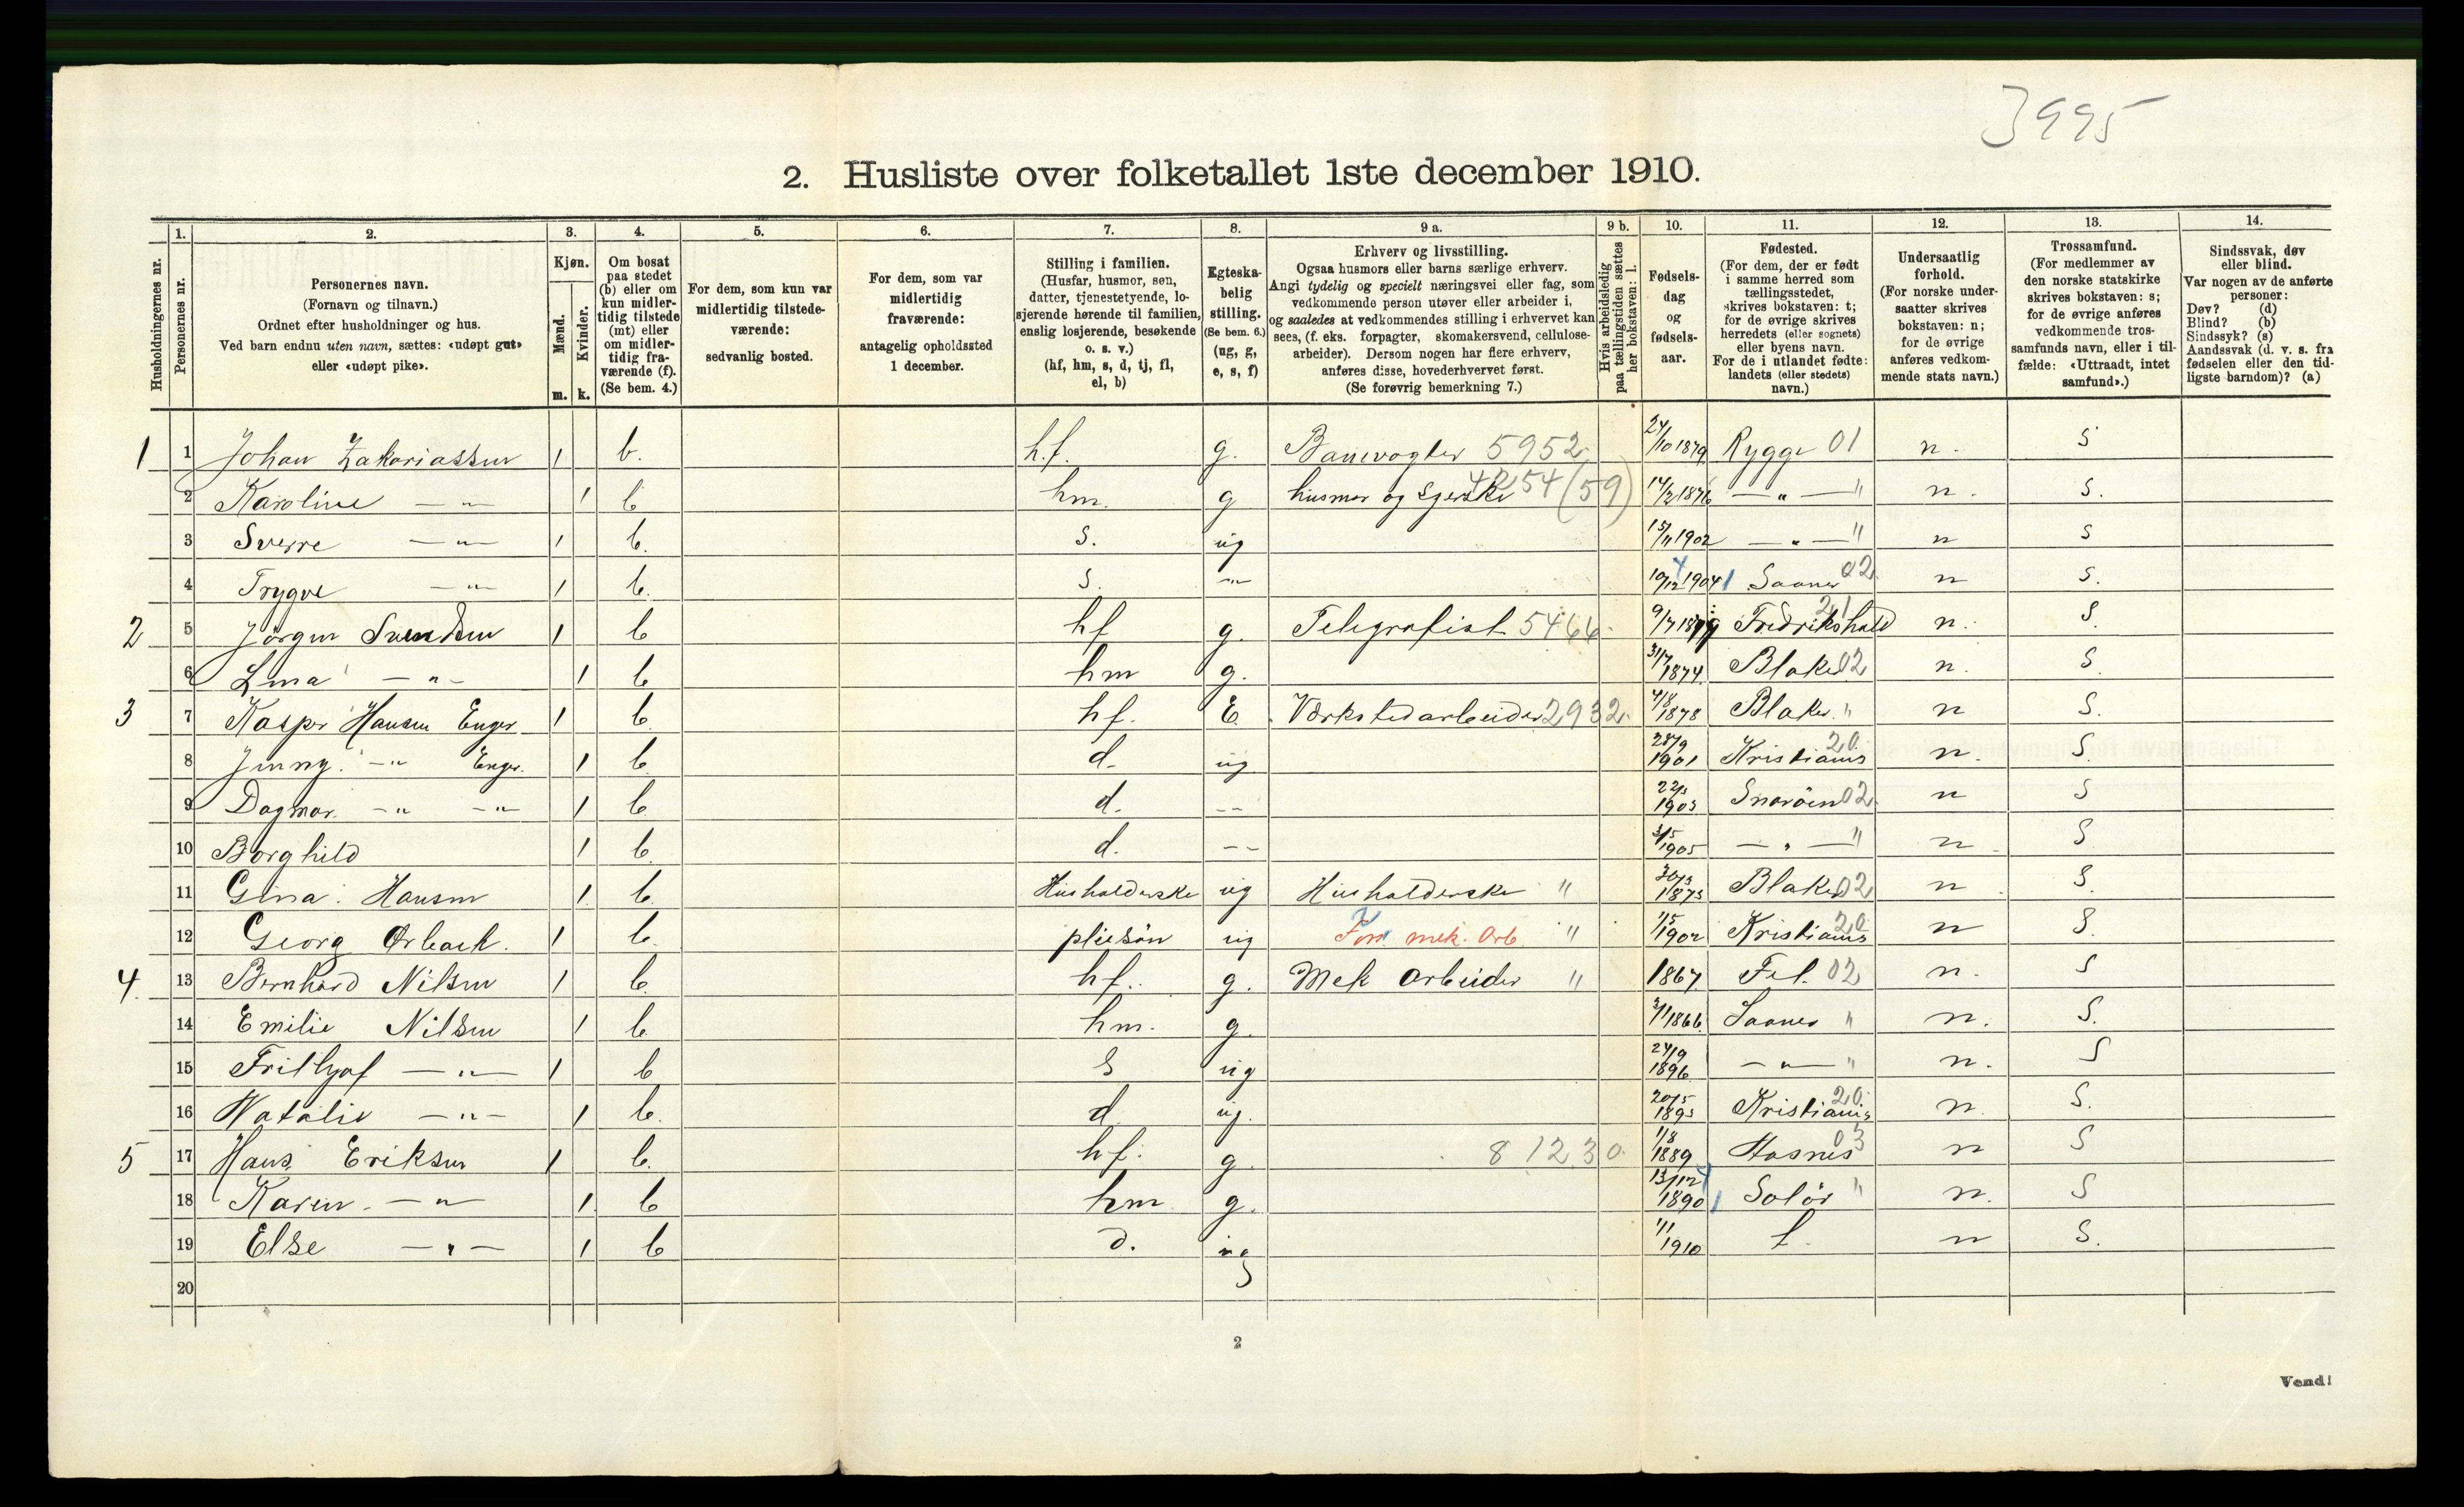 3995
2. Husliste over folketallet 1ste december 1910.
Husholdningernes nr.
1. Personernes nr.
2. Personernes navn.
(Fornavn og tilnavn.)
Ordnet efter husholdninger og hus.
Ved barn endnu uten navn, sættes: «udøpt gut»
eller «udøpt pike».
3. Kjøn.
Mænd. m.
Kvinder. k.
4. Om bosat
paa stedet
(b) eller om
kun midler-
tidig tilstede
(mt) eller
om midler-
tidig fra-
værende (f).
(Se bem. 4.)
5. For dem, som kun var
midlertidig tilstede-
værende:
sedvanlig bosted.
6. For dem, som var
midlertidig
fraværende:
antagelig opholdssted
1 december.
7. Stilling i familien.
(Husfar, husmor, søn,
datter, tjenestetyende, lo-
sjerende hørende til familien,
enslig losjerende, besøkende
o. s. v.)
(hf, hm, s, d, tj, fl,
el, b)
8. Egteska-
belig
stilling.
(Se bem. 6.)
(ug, g,
e, s, f)
9 a. Erhverv og livsstilling.
Ogsaa husmors eller barns særlige erhverv.
Angi tydelig og specielt næringsvei eller fag, som
vedkommende person utøver eller arbeider i,
og saaledes at vedkommendes stilling i erhvervet kan
sees, (f. eks. forpagter, skomakersvend, cellulose-
arbeider). Dersom nogen har flere erhverv,
anføres disse, hovederhvervet først.
(Se forøvrig bemerkning 7.)
9 b. Hvis arbeidsledig
paa tællingstiden sættes
her bokstaven: l.
10. Fødsels-
dag
og
fødsels-
aar.
11. Fødested.
(For dem, der er født
i samme herred som
tællingsstedet,
skrives bokstaven: t;
for de øvrige skrives
herredets (eller sognets)
eller byens navn.
For de i utlandet fødte:
landets (eller stedets)
navn.)
12. Undersaatlig
forhold.
(For norske under-
saatter skrives
bokstaven: n;
for de øvrige
anføres vedkom-
mende stats navn.)
13. Trossamfund.
(For medlemmer av
den norske statskirke
skrives bokstaven: s;
for de øvrige anføres
vedkommende tros-
samfunds navn, eller i til-
fælde: «Uttraadt, intet
samfund».)
14. Sindssvak, døv
eller blind.
Var nogen av de anførte
personer:
Døv? (d)
Blind? (b)
Sindssyk? (s)
Aandssvak (d. v. s. fra
fødselen eller den tid-
ligste barndom)? (a)
1 1 Johan Zakariassen 1 b. h.f. g. Banevogter 5952 24/10 1879 Rygge 01 n. S
2 Karoline — " — 1 b hm. g husmor og 4254 (59) 14/2 1876 — " — " n. S.
3 Sverre — " — 1 b. S. ug 15/11 1902 — " — " n S
4 Trygve — " 1 b. S. — " 10/12 1904 Saaner 02 n S.
2 5 Jörgen Svendsen 1 b hf g. Telegrafist 5466 9/7 Fredrikshald 21 n. S.
6 Lina — " — 1 b hm g. 31/7 1874. Blaker 02 n. S
3 7 Kasper Hansen Enger 1 b. hf. E. Værkstedarbeider 2932 4/8 1878 Blaker " n S.
8 Jenny — " Enger. 1 b. d. ug 28/9 1901 Kristiania 20 n. S.
9 Dagmar — " — " 1 b. d. — — 1903 Snarøen 02 n S
10 Borghild 1 b. d. — — 3/5 1905 — " — " n S
11 Gina Hansen 1 b. Husholderske ug Husholderske " 30/3 1873 Blaker 02 n S.
12 Georg Orback. 1 b. pliesön ug mek. Arb. " 1/5 1902 Kristiania 20 n S.
4. 13 Bernhard Nilsen 1 b. hf. g. Mek arbeider " 1867 Fet. 02 n. S
14 Emilie Nilsen 1 b. hm. g. 3/1 1866. Saaner " n. S.
15 Frithjof — " — 1 b S ug 24/9 1896 — " — " n. S
16 Natalie — " — 1 b. d ug. 20/5 1893 Kristiania 20 n. S.
5 17 Hans Eriksen 1 b. hf. g. 8 1230 1/8 1889 03 n S
18 Karen — " — 1 b hm g. 13/12 1890 Solör " n. S
19 Else — " — 1 b d. ug 1/1 1910 t. n S.
20
2
Vend!